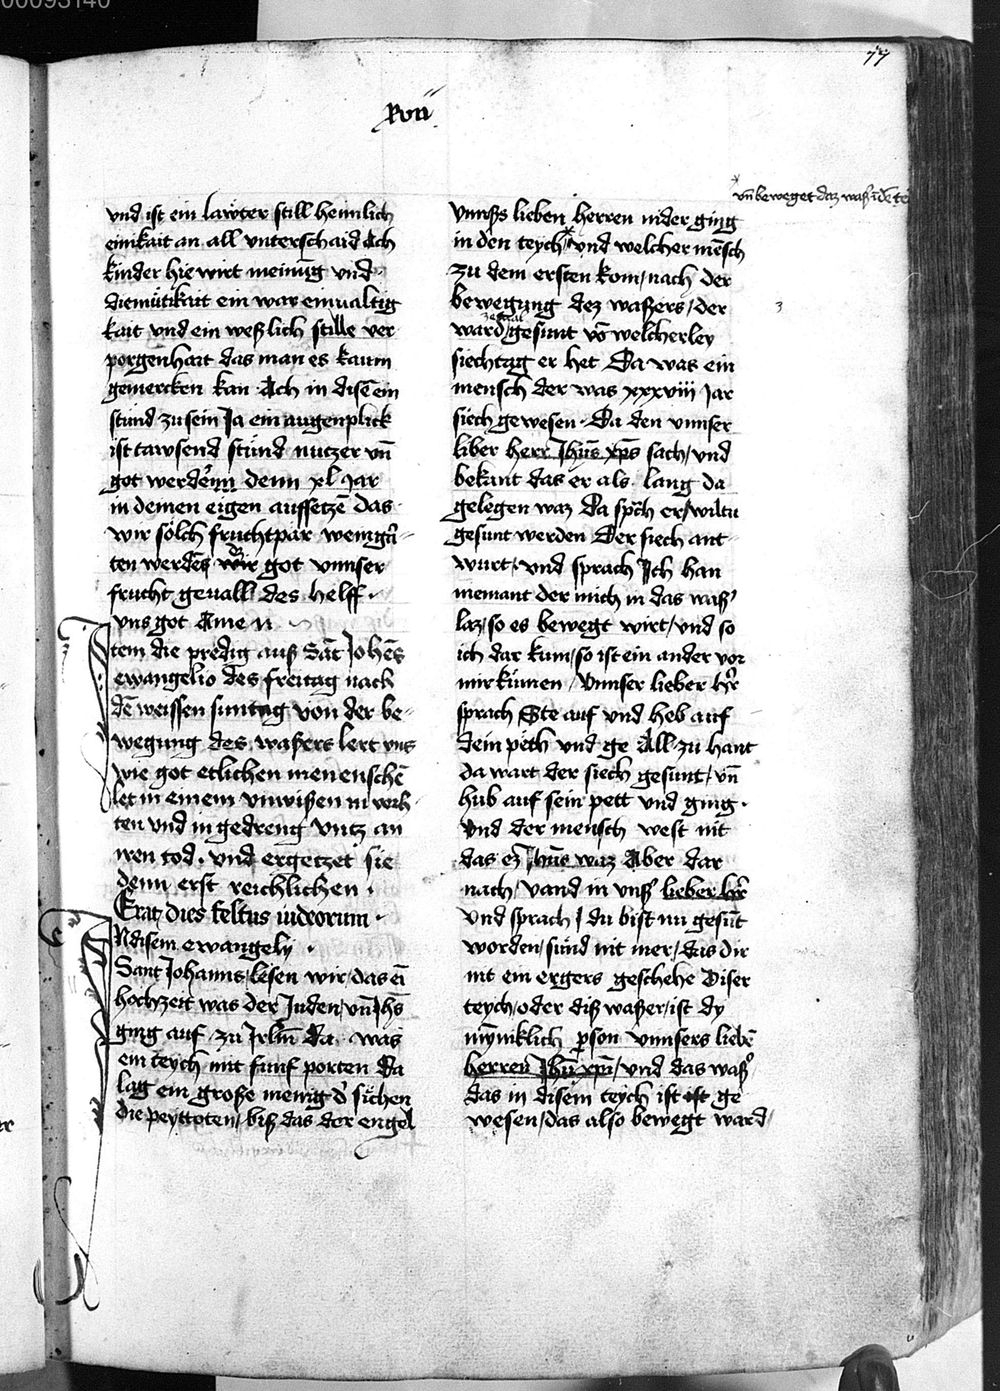 00093140
77
xvii
vnd ist ein lawter still heimlich
einikait an all vnterschaid Ach
kinder hie wirt meinūg vnd
diemütikait ein war einualtig
kait vnd ein weßlich stille ver
porgenhait das man es kaum
gemercken kan Ach in disē ein
stund zu sein Ja ein augenplick
ist tawsend stund nutzer vn̄
got werdēnn denn xl Jar
in deinen eigen auffsetzē das
wir sölch fruchtpar weingar̄
ten werdēs wir got vnnser
frucht geuall des helff
vns got Amen
Item die predig auß Sāt Johēs
ewangelio des freitag nach
dē weissen suntag von der be-
wegung des waßers lert vns
wie got etlichen menenschē
let in einem vnwißen in vorh
ten vnd in gedreng vntz an
iren tod. vnd ergetzet sie
denn erst reichlichen.
Erat dies festus iudeorum.
INdisem ewangely.
Sant Johanns/lesen wir/das eī
hochzeit was der Juden/vn̄ Jhs̄
ging auf zu Jrlm̄ Da was
ein teych mit funf porten Da
lag ein große menig d' sichen
die peyttoten/biß das der engel
* vn̄ beweget daz waß' ī dē te
vnnßs lieben herren nider ging
in den teych * vnd welcher mēsch
zu dem ersten kom/nach der
bewegung dez waßers/der
ward/gesunt vō welcherley
siechtag er het Da was ein
3
mensch der was xxxviii Jar
siech gewesen. Da den vnnser
liber herr Jhūs xp̄s sach/vnd
bekant das er als lang da
gelegen waz Da spch̄ er/wiltu
gesunt werden Der siech ant
wurt/vnd sprach Ich han
niemant der mich in das waß'
laz/so es bewegt wirt/vnd so
ich dar kum/so ist ein ander vor
mir kumen/Vnnser lieber hr̄
sprach Ste auf vnd heb auf
dein peth vnd ge All zu hant
da wart der siech gesunt/vn̄
hub auf sein pett vnd ging.
Vnd der mensch west nit
das ez Jhūs waz Aber dar
nach/vand in vnß' lieber hr̄
vnd sprach/du bist nu gesūt
worden/sund nit mer/das dir
nit ein ergers geschehe Diser
teych/oder diß waßer/ist dy
mȳniklich pson vnnsers liebē
herren Jhū xpī/vnd das waß'
das in disem teych ist ist ge
wesen/das also bewegt ward